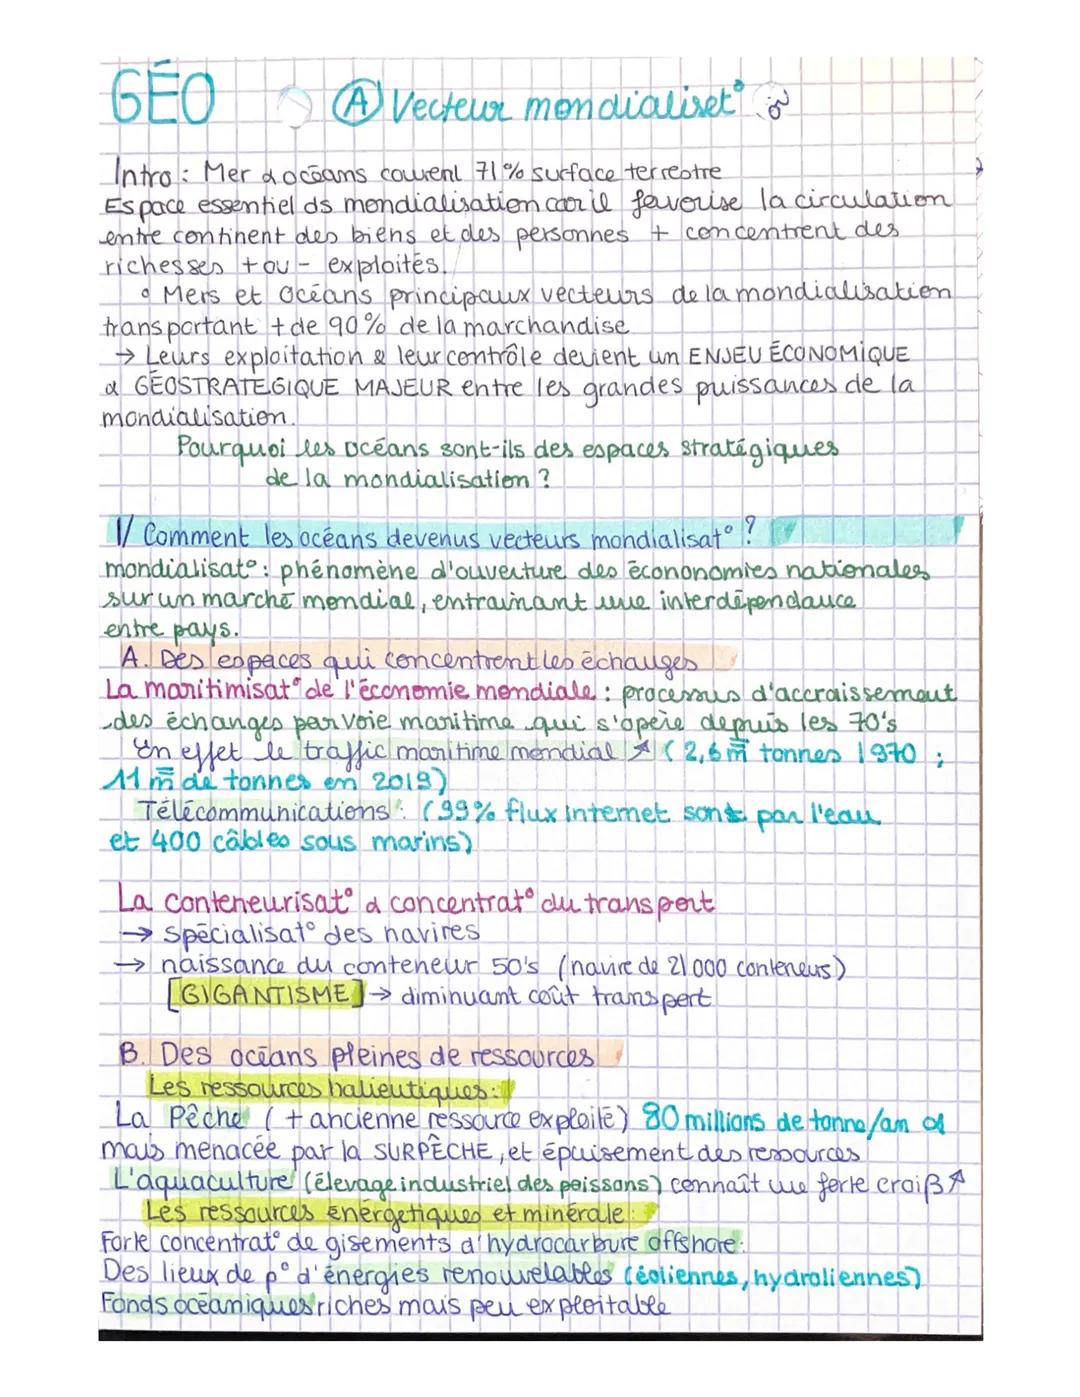 GÉO
Ⓐ Vecteur mondialisat°
Intro : Mer & océans couvrent 71% surface terrestre
Espace essentiel ds mondialisation car il favorise la circulation
entre continent des biens et des personnes + concentrent des
richesses + ou - exploités.
° Mers et Océans principaux vecteurs de la mondialisation
transportant + de 90% de la marchandise
→ Leurs exploitation & leur contrôle devient un ENJEU ÉCONOMIQUE
& GÉOSTRATEGIQUE MAJEUR entre les grandes puissances de la
mondialisation.
Pourquoi les océans sont-ils des espaces stratégiques
de la mondialisation ?
I/ Comment les océans devenus vecteurs mondialisat° ?
mondialisat° : phénomène d'ouverture des écononomies nationales
sur un marché mondial, entrainant une interdépendance
entre pays.
A. Des espaces qui concentrent les échanges
La maritimisat° de l'économie mondiale : processus d'accraissement
des échanges par voie maritime qui s'opère depuis les 70's
En effet le traffic maritime mondial ↗ (2,6 m̅ tonnes 1970 ;
11 m̅ de tonnes en 2019)
Télécommunications : (99% flux internet sont par l'eau
et 400 câbles sous marins)
La conteneurisat° & concentrat° du transport
→ spécialisat° des navires
→ naissance du conteneur 50's (navire de 21 000 conteneurs)
[GIGANTISME] → diminuant coût transport
B. Des océans pleines de ressources
Les ressources halieutiques :
La Pêche ( + ancienne ressource exploité) 80 millions de tonne/an
mais menacée par la SURPÊCHE, et épuisement des ressources
L'aquaculture (élevage industriel des poissons) connaît une forte croiß ↗
Les ressources énérgetiques et minérale :
Forte concentrat° de gisements d'hydrocarbure offshore :
Des lieux de p° d'énergies renouvelables (éoliennes, hydroliennes)
Fonds océaniques riches mais peu exploitable